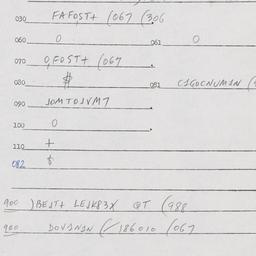 030 FAFOST+ (067 (306
060 0 061 0
070 0,FOST+ (067
080 # 081 C1GOCNUM1N (
090 JOMTOJVM7
100 0
110 +
082 $
900 )BEJT+ LEJKP3X @T (988
900 DOV1N1N (186010 (067